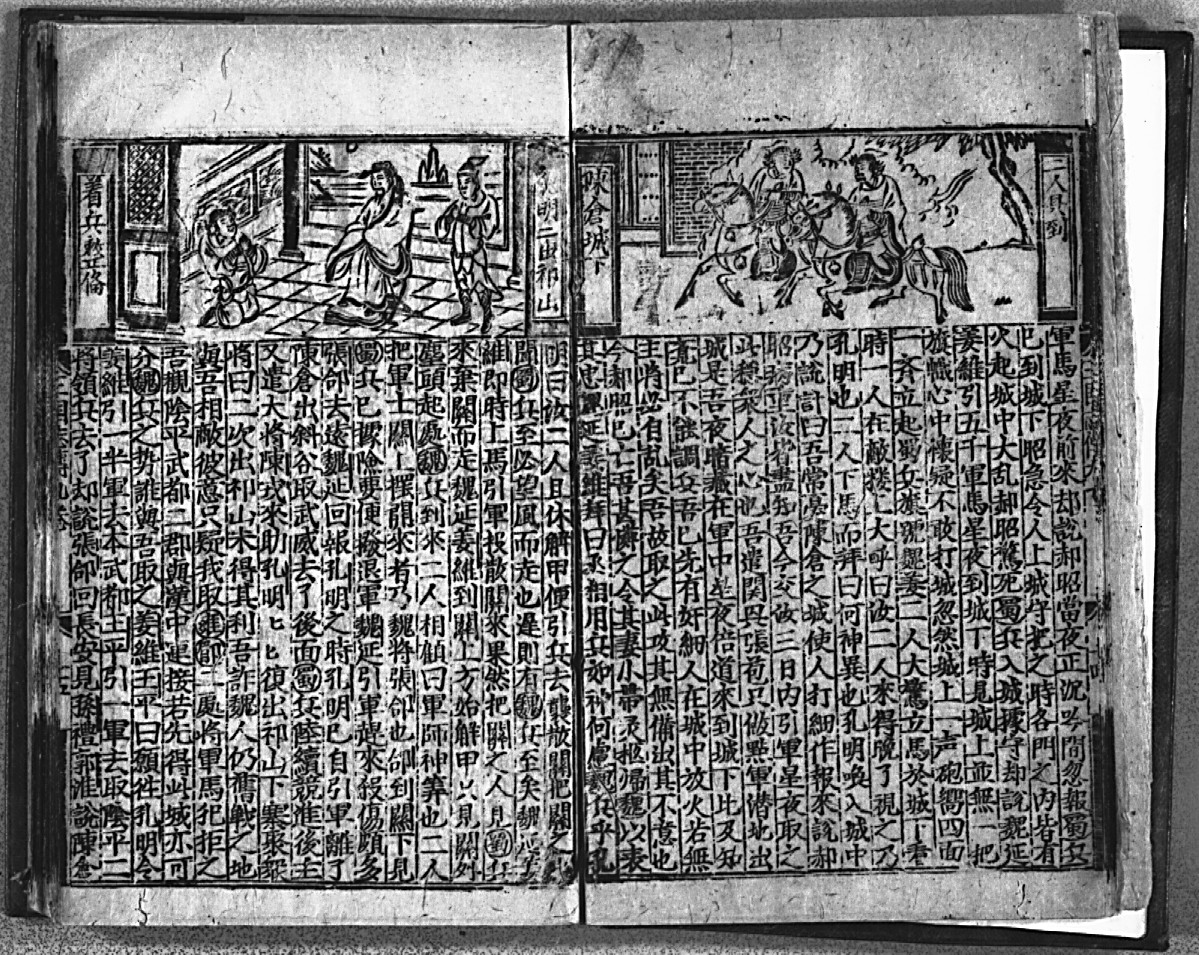 二人具到
陳倉城下
軍馬星夜前來却說郝昭當夜正沉吟間忽報蜀兵
已到城下昭急令人上城守把之時各門之內皆有
火起城中大乱郝昭驚死蜀兵入城據守却說魏延
姜維引五千軍馬星夜到城下時見城上並無一把
旗幟心中懷疑不敢打城忽然城上一声砲响四面
一齐立起蜀女旗號魏姜二人大驚立馬於城下看
時一人在敵楼上大呼曰汝二人來得晚了視之乃
孔明也二人下馬而拜曰何神異也孔明喚入城中
乃說計曰吾常憂陳倉之城使人打細作報來說郝
昭病重汝皆盡知吾今交汝三日內引軍星夜取之
此穩衆人之心也吾遣関與張苞只做點軍潜地出
城是吾夜暗藏在軍中星夜倍道來到城下比及知
覺已不能調兵吾已先有奸細人在城中放火若無
主將必自乱矣吾故取之此攻其無備出其不意也
今郝昭已亡吾其憐之令其妻小帶灵柩歸魏以表
其忠魏延姜維拜曰丞相用兵如神何慮魏兵乎孔
孔明二出祁山
着兵整俻
明曰汝二人且休觧甲便引兵去襲散關把關之
聞蜀兵至必望風而走也遲則有魏兵至矣魏延姜
維即時上馬引軍投散關來果然把關之人見蜀兵
來棄關而走魏延姜維到關上方始觧甲以見關外
塵頭起處魏兵到來二人相顧曰軍師神筭也二人
把軍士關上擺開來者乃魏將張郃也郃到關下見
蜀兵已據險要便撥退軍魏延引軍趕來殺傷頗多
張郃去遠魏延回報孔明之時孔明已自引軍離了
陳倉出斜谷取武威去了後面蜀兵陸續競進後主
又遣大將陳式來助孔明匕匕復出祁山下寨聚衆
將曰二次出祁山未得其利吾詐魏人仍舊戰之地
與吾相敵彼意只疑我取雍郿二處將軍馬死拒之
吾觀陰平武都二郡與漢中連接若先得此城亦可
分魏兵之势誰與吾取之姜維王平曰願徃孔明令
姜維引一半軍去本武都王平引一軍去取陰平二
將領兵去了却說張郃回長安見孫禮郭淮說陳倉